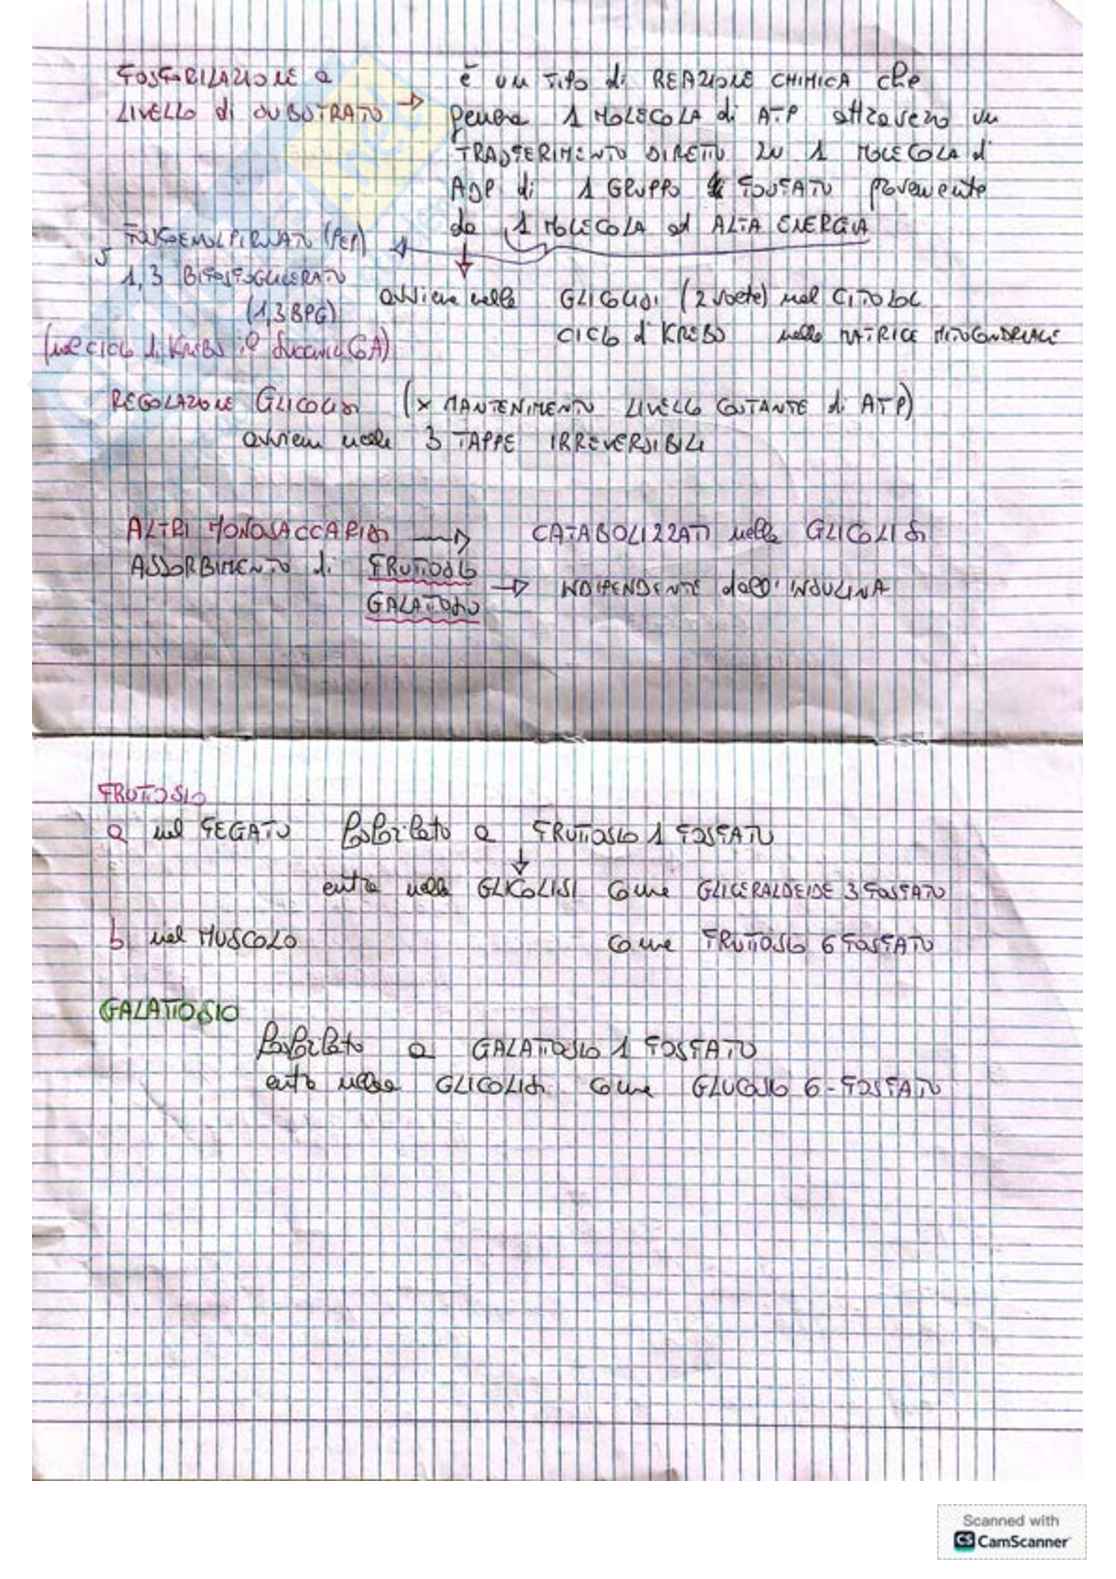 FOSFORILAZIONE a
LIVELLO di SUBSTRATO →
è un TIPO di REAZIONE CHIMICA che
genera 1 MOLECOLA di ATP attraverso un
TRASFERIMENTO DIRETTO su 1 MOLECOLA di
ADP di 1 GRUPPO FOSFATO provenente
da 1 MOLECOLA ad ALTA ENERGIA
FOSFOENOLPIRUVATO (PEP)
1,3 BIFOSFOGLICERATO
(1,3 BPG)
(nel ciclo di KREBS è Succinil CoA)
avviene nella GLICOLISI (2 volte) nel CITOSOL
CICLO di KREBS nella MATRICE MITOCONDRIALE
REGOLAZIONE GLICOLISI (x MANTENIMENTO LIVELLO COSTANTE di ATP)
avviene nelle 3 TAPPE IRREVERSIBILI
ALTRI MONOSACCARIDI → CATABOLIZZATI nella GLICOLISI
ASSORBIMENTO di FRUTTOSIO
GALATTOSIO
→ INDIPENDENTE dall'INSULINA
FRUTTOSIO
a nel FEGATO fosforilato a FRUTTOSIO 1 FOSFATO
entra nella GLICOLISI come GLICERALDEIDE 3 FOSFATO
b nel MUSCOLO come FRUTTOSIO 6 FOSFATO
GALATTOSIO
fosforilato a GALATTOSIO 1 FOSFATO
entra nella GLICOLISI come GLUCOSIO 6-FOSFATO
Scanned with
CS CamScanner